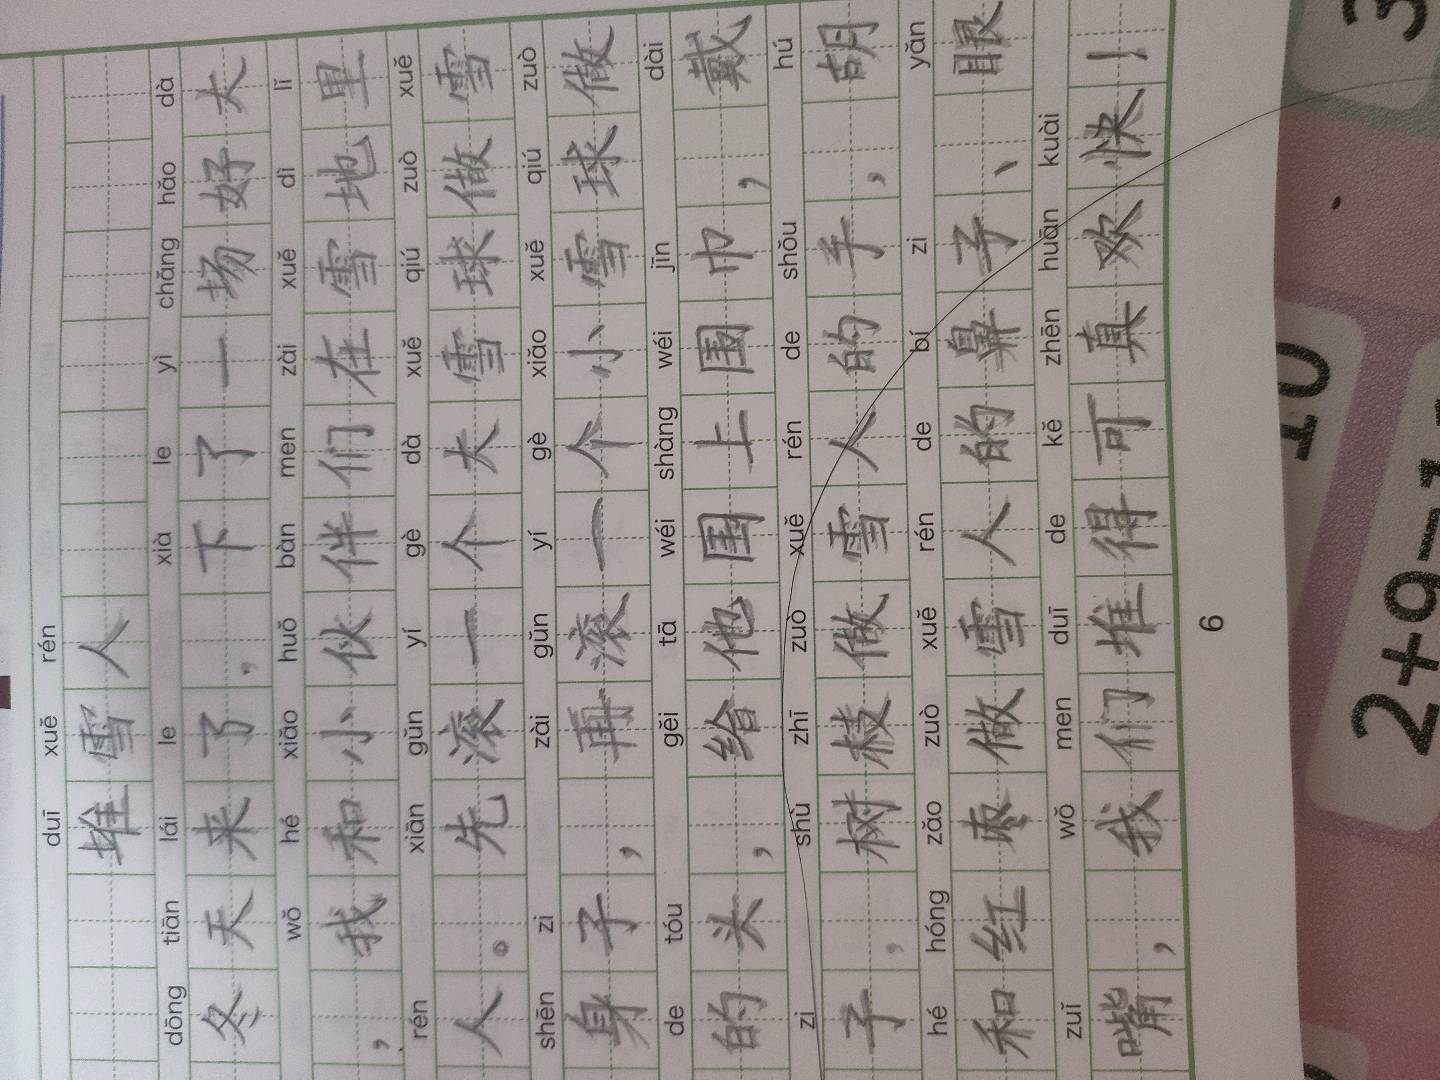 duī xuě rén
堆雪人
dōng tiān lái le xià le yì chǎng hǎo dà
冬天来了，下了一场好大
wǒ hé xiǎo huǒ bàn men zài xuě dì lǐ
，我和小伙伴们在雪地里
rén xiān gǔn yí gè dà xuě qiú zuò xuě
人。先滚一个大雪球做雪
shēn zi zài gǔn yí gè xiǎo xuě qiú zuò
身子，再滚一个小雪球做
de tóu gěi tā wéi shàng wéi jīn dài
的头，给他围上围巾，戴
zi shù zhī zuò xuě rén de shǒu hú
子，树枝做雪人的手，胡
hé hóng zǎo zuò xuě rén de bí zi yǎn
和红枣做雪人的鼻子、眼
zuǐ wǒ men duī de kě zhēn huān kuài
嘴，我们堆得可真欢快！
6
10
3
2+9-1